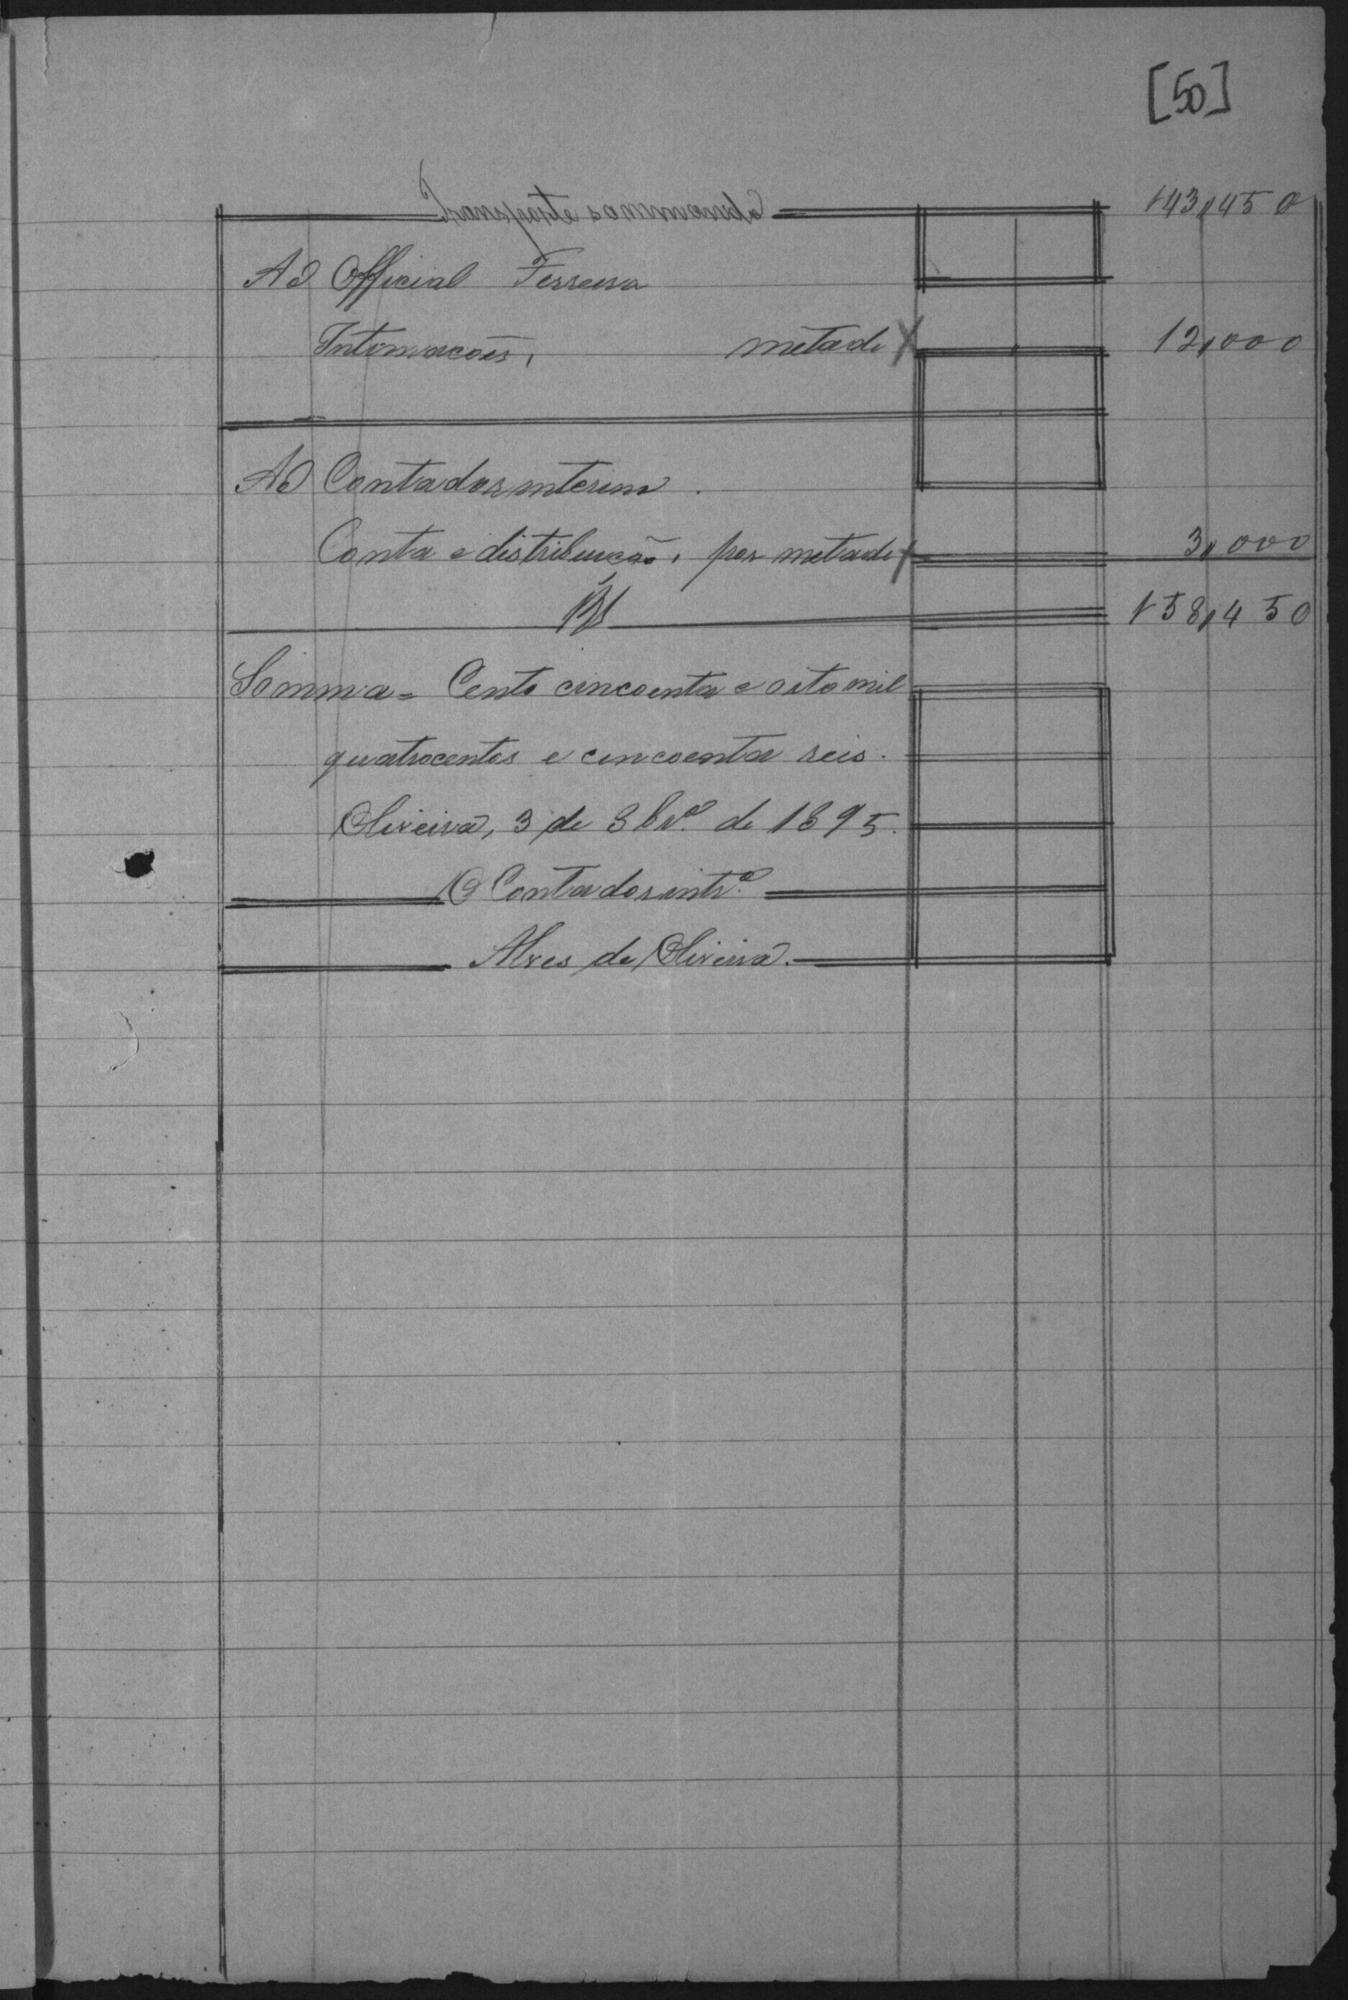 [50]
Transporte sommas 143,450
Ao Official Ferreira
Intimacoẽs, metade 12,000
Ao Contador interino.
Conta e distribuição, por metade 3,000
Rs 158,450
Somma = Cento cincoenta e oito mil
quatrocentos e cincoenta reis.
Oliveira, 3 de 8brº. de 1895.
O Contador intrº.
Alves de Oliveira.